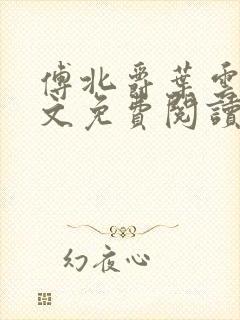 傅北爵葉雲
文免費閱讀
幻夜心